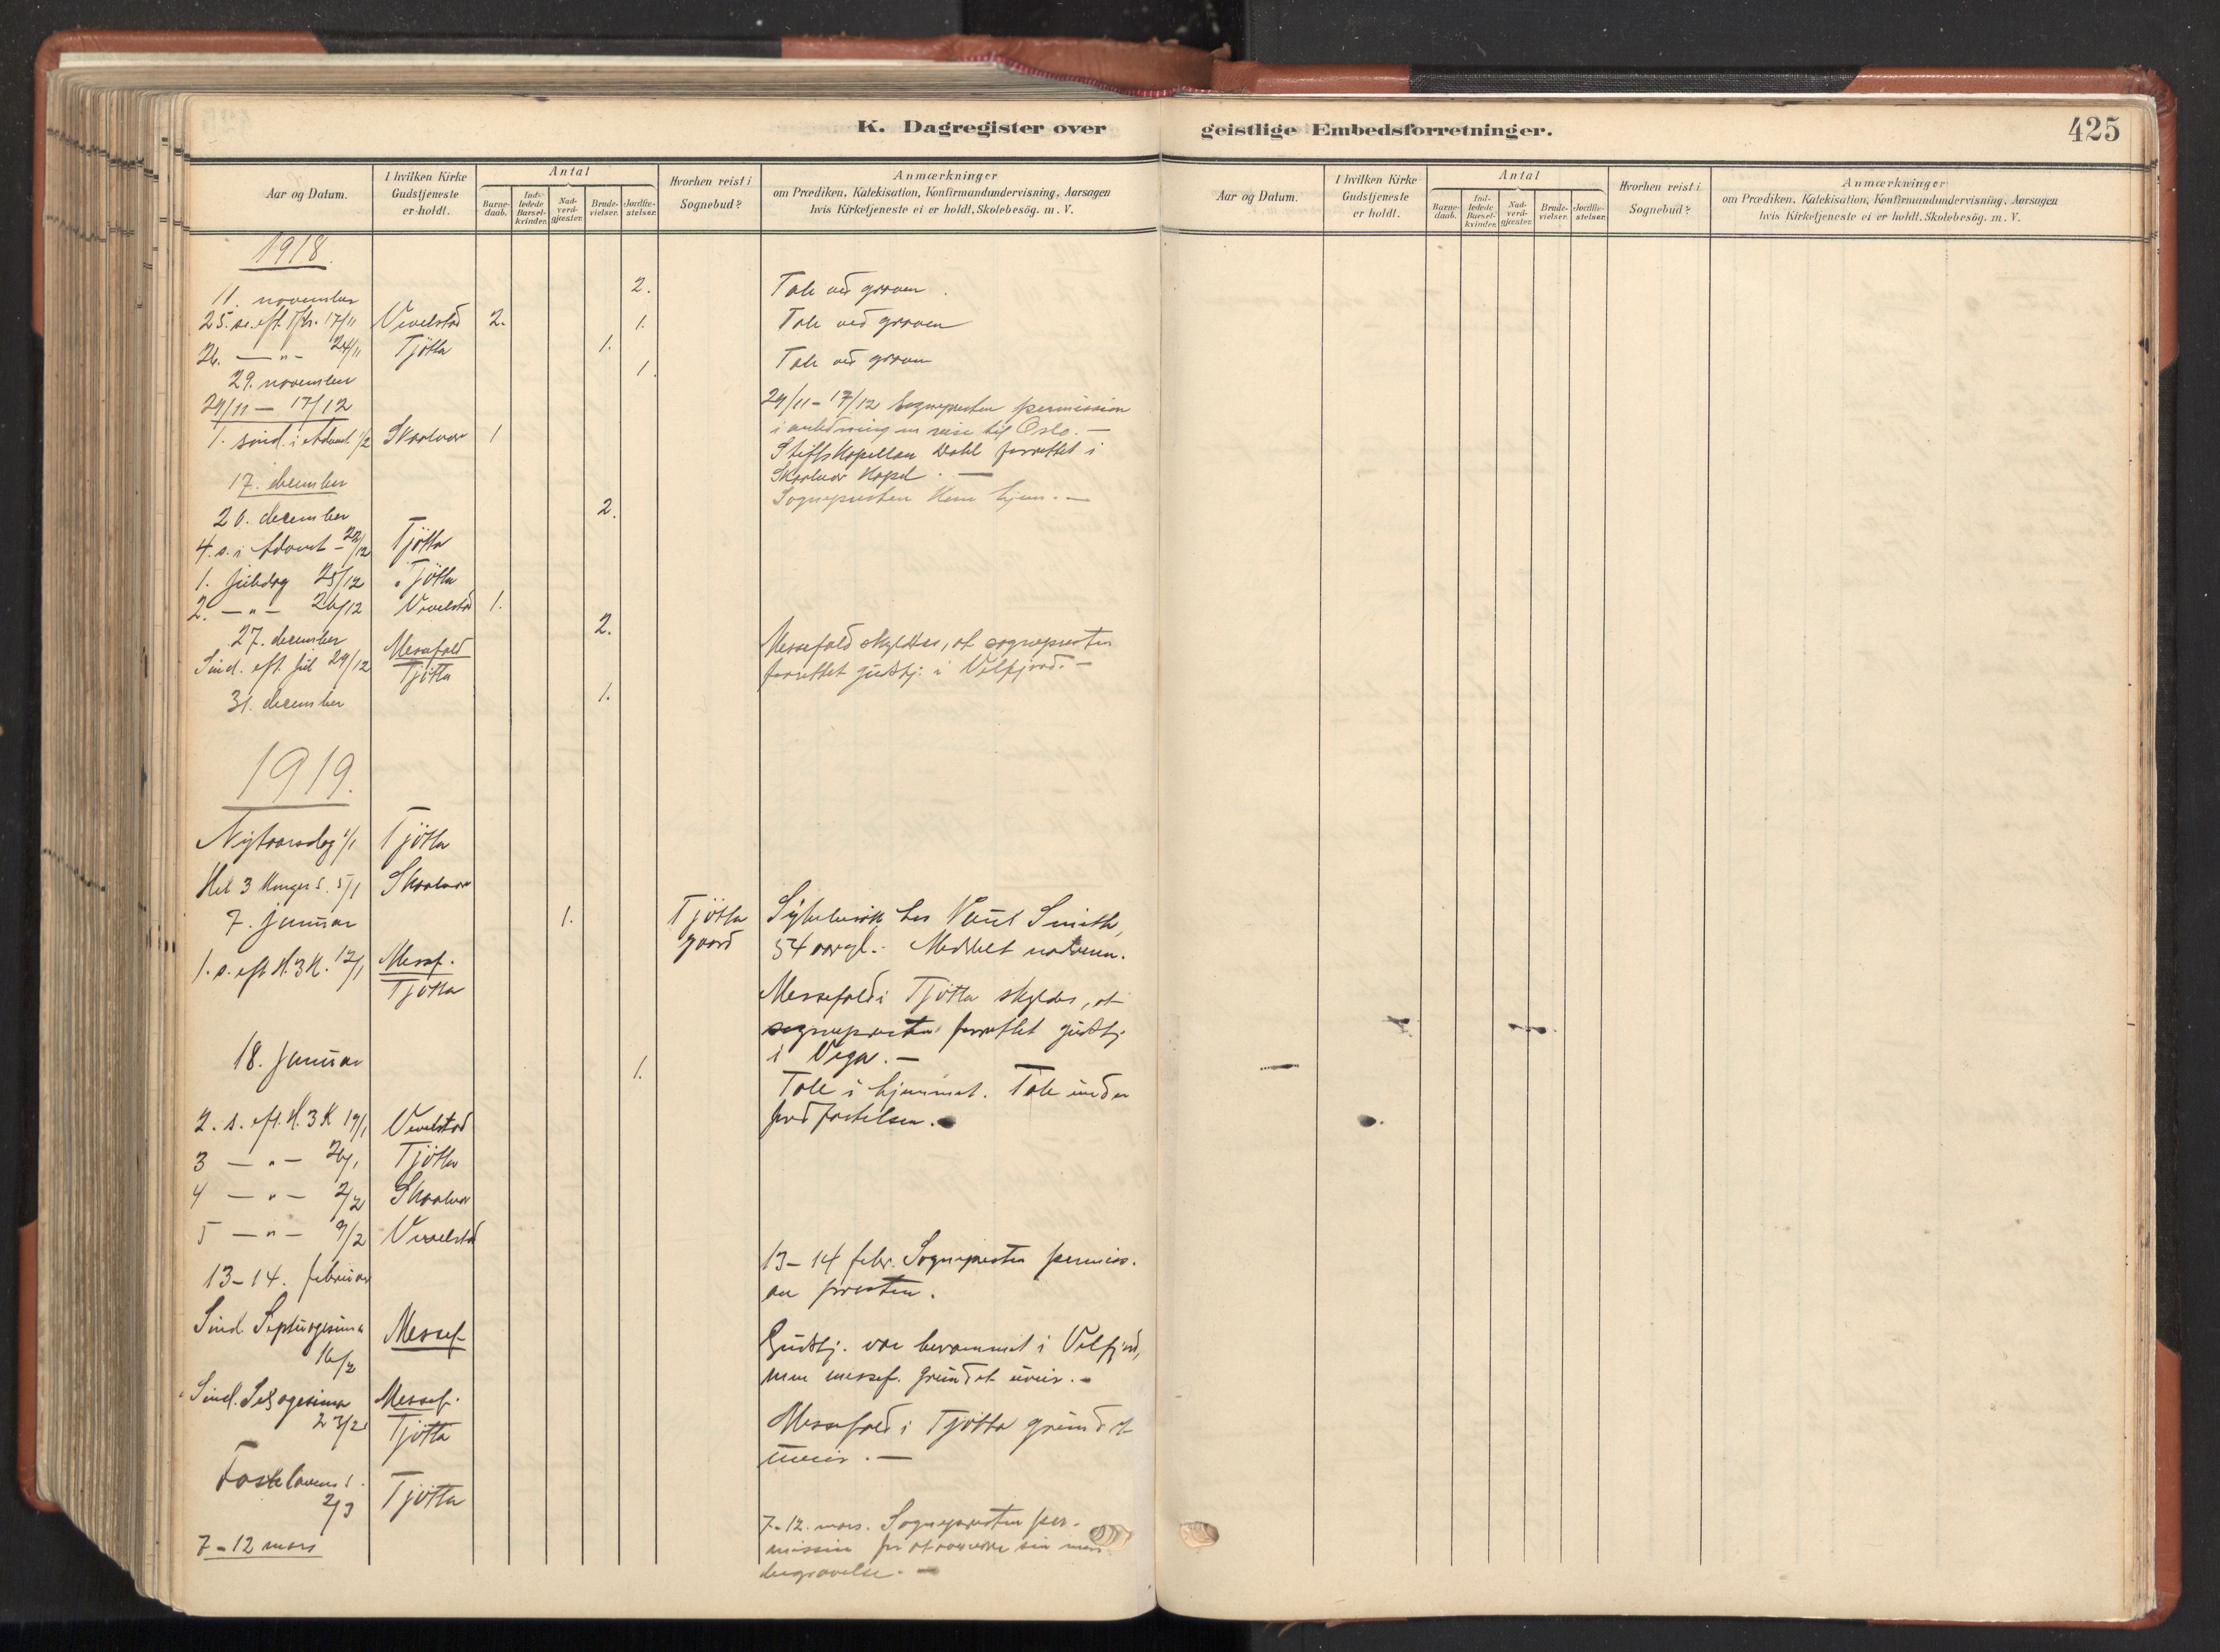 K. Dagregister over geistlige Embedsforretninger. 425
Aar og Datum. I hvilken Kirke Gudstjeneste er holdt. Antal Barnedaab. Indledede Barselkvinder. Nadverdgjæster. Brudevielser. Jordfæstelser. Hvorhen reist i Sognebud? Anmærkninger om Prædiken, Katekisation, Konfirmandundervisning, Aarsagen hvis Kirketjeneste ei er holdt, Skolebesög. m. V.
Aar og Datum. I hvilken Kirke Gudstjeneste er holdt. Antal Barnedaab. Indledede Barselkvinder. Nadverdgjæster. Brudevielser. Jordfæstelser. Hvorhen reist i Sognebud? Anmærkninger om Prædiken, Katekisation, Konfirmandundervisning, Aarsagen hvis Kirketjeneste ei er holdt, Skolebesög. m. V.
1918.
11. november 2. Tale ved graven.
25. s. eft. Tr. 17/11 Vevelstad 2. 1. Tale ved graven
26. — " — 24/11 Tjötta 1.
29. november 1. Tale ved graven
29/11 — 17/12 29/11 - 17/12 Sognepresten permission
i anledning en reise til Oslo. —
1. sönd. i Advent 1/12 Skaalvær 1 Stiftskapellan Dahl forrettet i
Skaalvær Kapel. —
17. december Sognepresten kom hjem. —
20. december 2.
4. s. i Advent - 22/12 Tjötta
1. juledag 25/12 Tjötta
2. — " — 26/12 Vevelstad 1.
27. december 2.
Sönd. eft. jul 29/12 Messefald Tjötta Messefald skyldtes, at sognepresten
forrettet gudstj. i Velfjord. —
31. december 1.
1919.
Nytaarsdag 1/1 Tjötta
Hel 3 Konger s. 5/1 Skaalvær
7. januar 1. Tjötta gaard Sykebesök hos Smith,
54 aar gl. - Meddelt nadveren.
1. s. eft H. 3 K. 12/1 Messf. Tjötta Messefald i Tjötta skyldes, at
sognepresten forrettet gudstj.
i Vega. —
18. januar 1. Tale i hjemmet. Tale under
jordfæstelsen.
2. s. eft. H. 3 K 19/1 Vevelstad
3 — " — 26/1 Tjötta
4 — " — 2/2 Skaalvær
5 — " — 9/2 Vevelstad
13 - 14. februar 13 - 14 febr. Sognepresten permiss.
av prosten.
Sönd. Septuagesima 16/2 Messef. Gudstj. var berammet i Velfjord,
men messef. grundet uveir. -
Sönd. Sexagesima 23/2 Messef. Tjötta Messefald i Tjötta grundet
uveir. —
Fastelavens s. 2/3 Tjötta
7 - 12 mars 7 - 12. mars. Sognepresten per-
mission for at overvære sin mors
begravelse. —